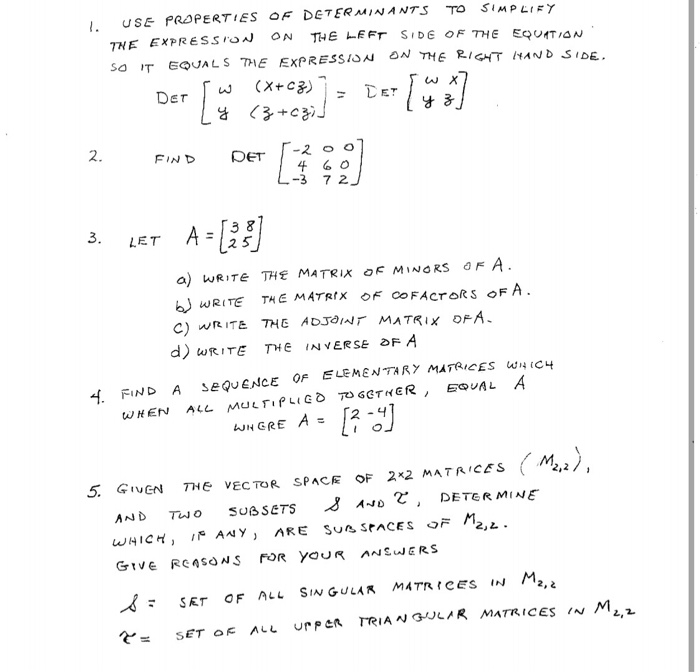 1. USE PROPERTIES OF DETERMINANTS TO SIMPLIFY
THE EXPRESSION ON THE LEFT SIDE OF THE EQUATION
SO IT EQUALS THE EXPRESSION ON THE RIGHT HAND SIDE.
DET [ w (x+cz) ; y (z+cz) ] = DET [ w x ; y z ]
2. FIND DET [ -2 0 0 ; 4 6 0 ; -3 7 2 ]
3. LET A = [ 3 8 ; 2 5 ]
a) WRITE THE MATRIX OF MINORS OF A.
b) WRITE THE MATRIX OF COFACTORS OF A.
C) WRITE THE ADJOINT MATRIX OF A.
d) WRITE THE INVERSE OF A
4. FIND A SEQUENCE OF ELEMENTARY MATRICES WHICH
WHEN ALL MULTIPLIED TOGETHER, EQUAL A
WHERE A = [ 2 -4 ; 1 0 ]
5. GIVEN THE VECTOR SPACE OF 2×2 MATRICES (M2,2),
AND TWO SUBSETS S AND T, DETERMINE
WHICH, IF ANY, ARE SUBSPACES OF M2,2.
GIVE REASONS FOR YOUR ANSWERS
S = SET OF ALL SINGULAR MATRICES IN M2,2
T = SET OF ALL UPPER TRIANGULAR MATRICES IN M2,2